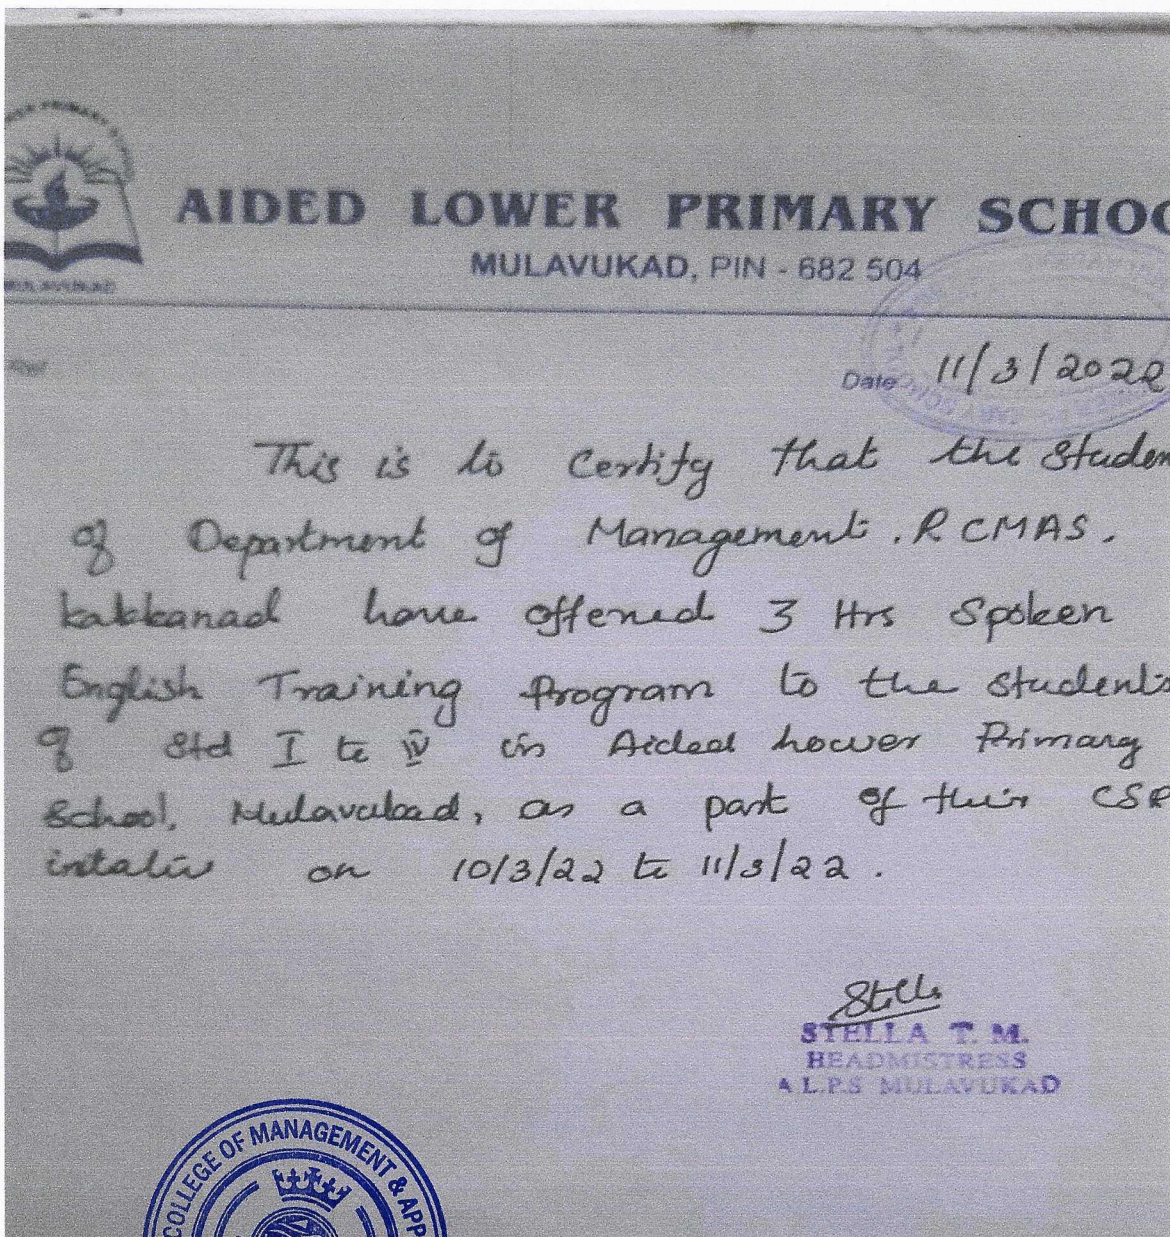 AIDED LOWER PRIMARY SCHOO
MULAVUKAD, PIN - 682 504
MULAVUKAD
Date 11/3/2022
This is to Certify that the Studen
of Department of Management. R CMAS.
kakkanad have offered 3 Hrs Spoken
English Training Program to the students
of Std I to IV in Aided Lower Primary
School, Mulavukad, as a part of their CSR
on 10/3/22 to 11/3/22.
Stella
STELLA T. M.
HEADMISTRESS
A L.P.S MULAVUKAD
COLLEGE OF MANAGEMENT & APP